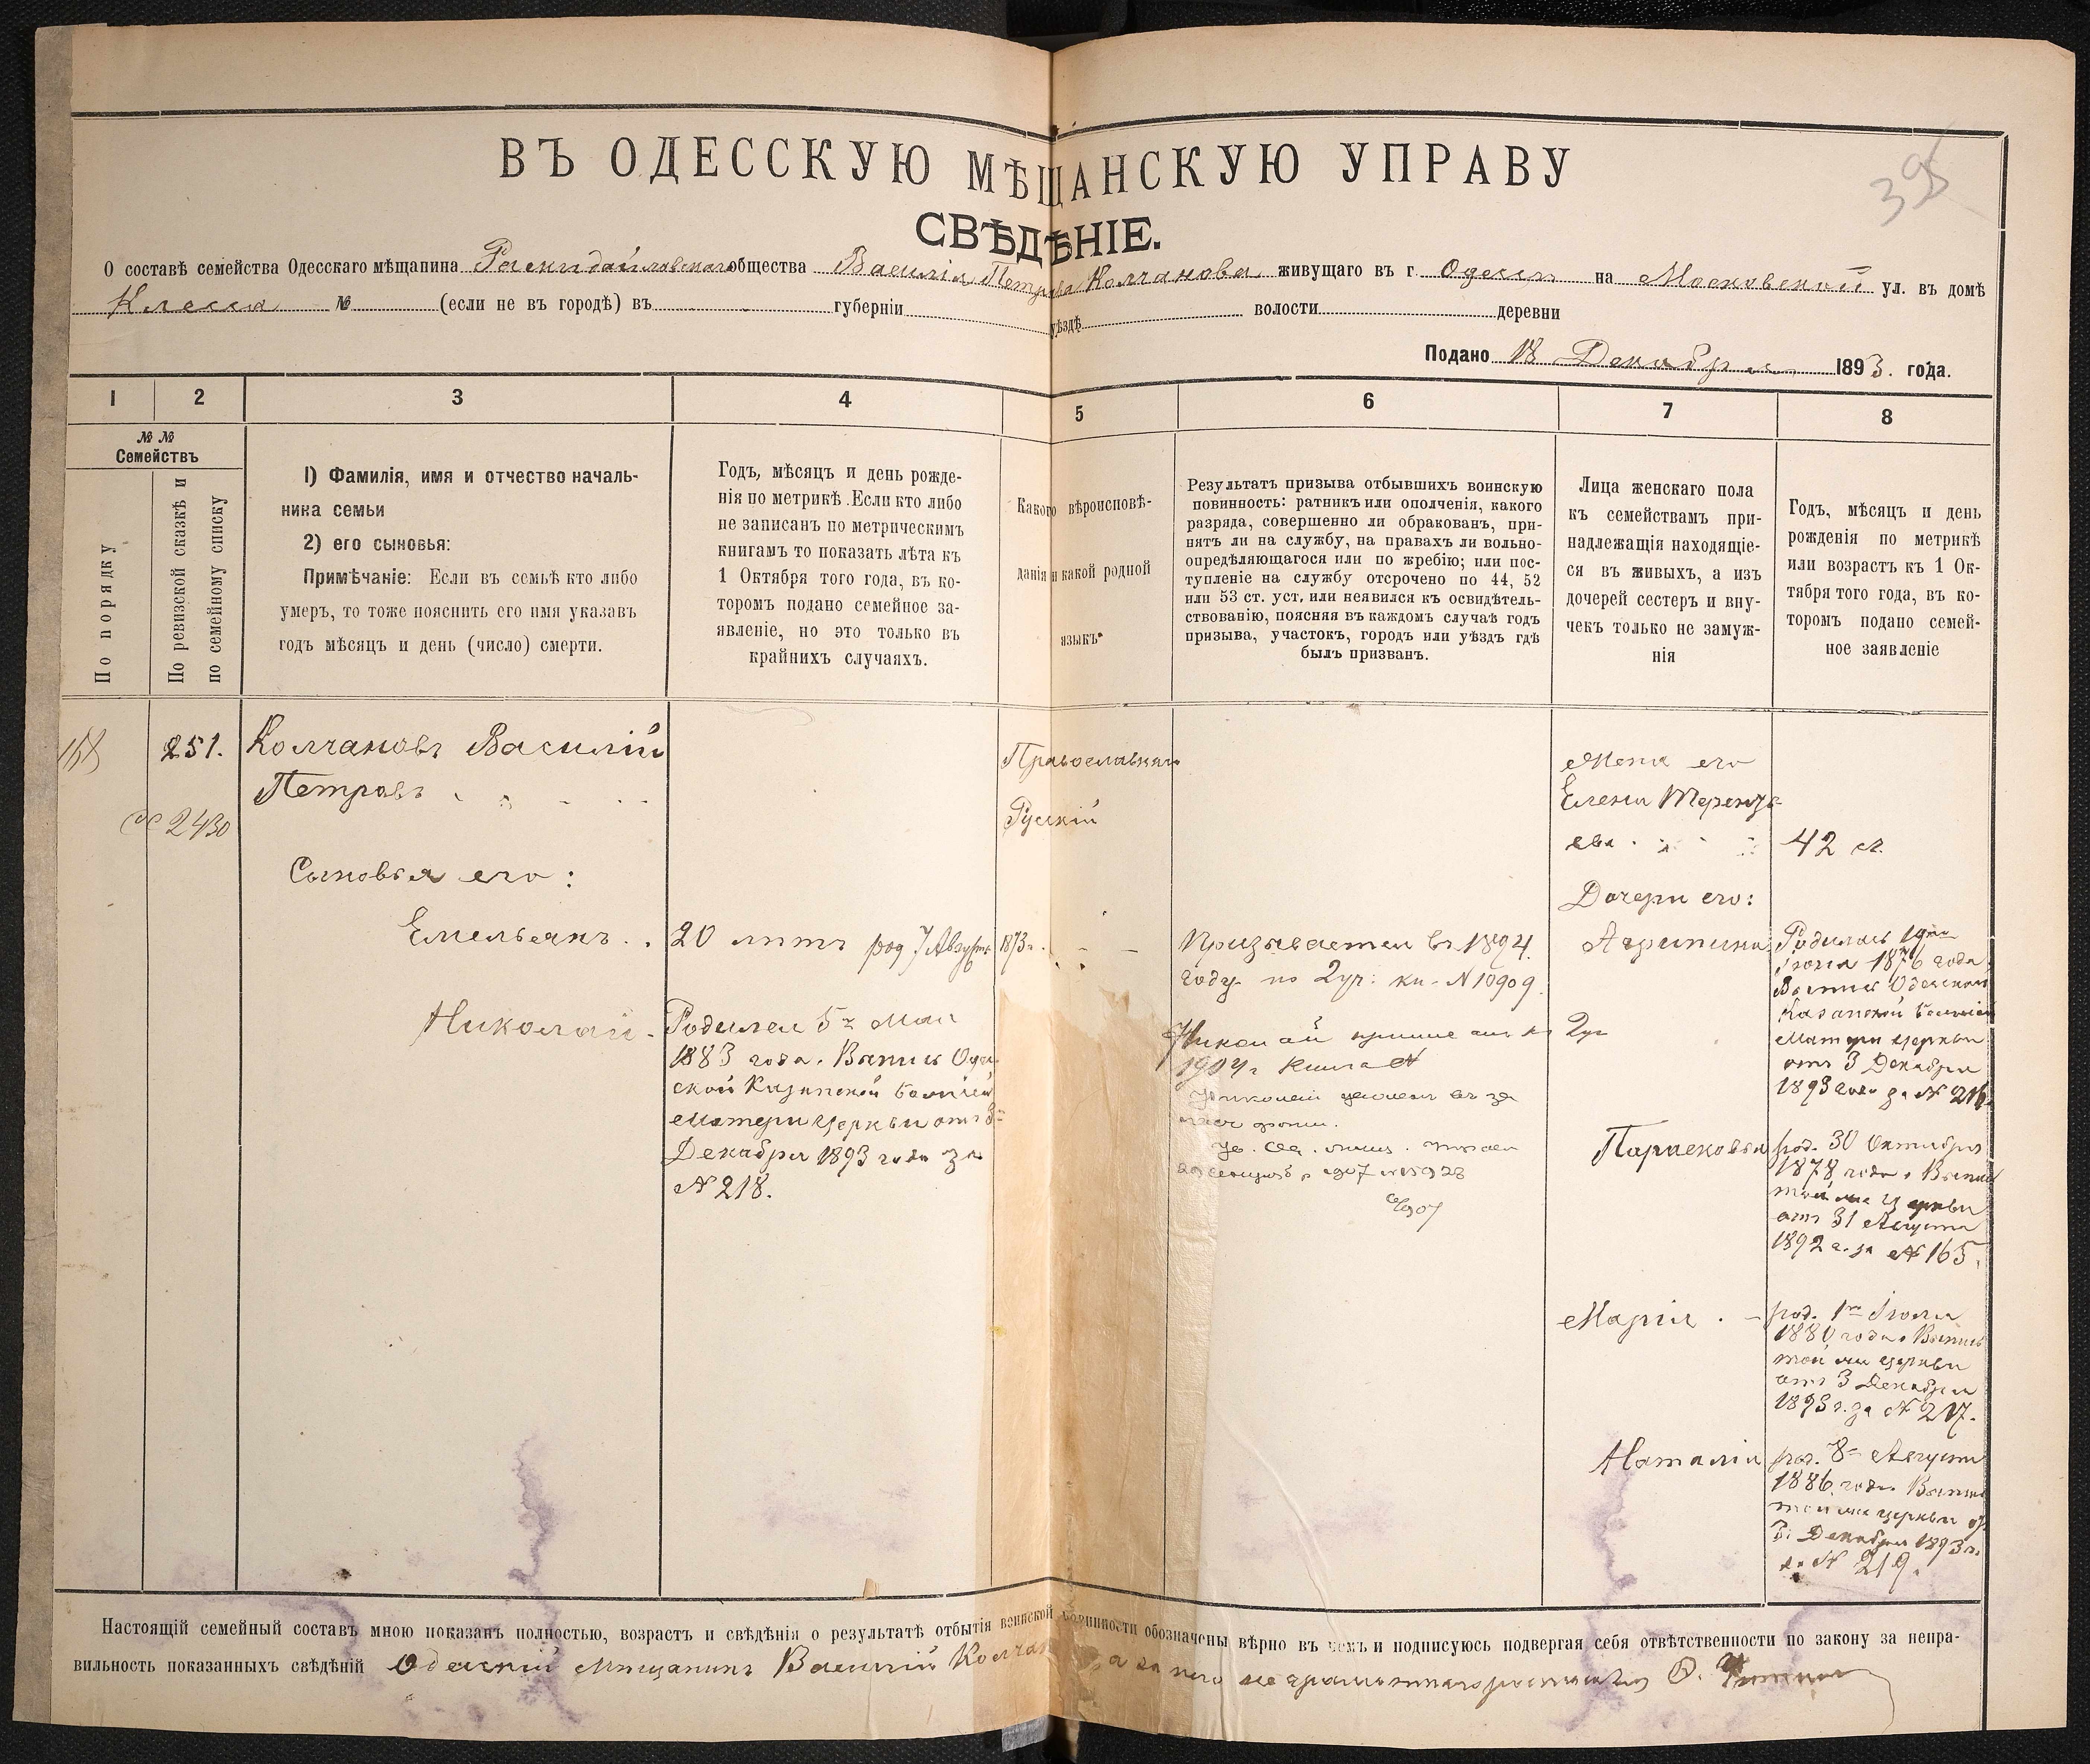 395
ВЪ ОДЕССКУЮ МѢЩАНСКУЮ УПРАВУ
СВѢДѢНІЕ.
О составѣ семейства Одесскаго мѣщанина Раскидайловскаго общества Василія Петрова Колчанова живущаго въ г. Одессѣ на Московской ул. въ домѣ
Клесса № (если не въ городѣ) въ губерніи уѣздѣ волости деревни
Подано 18 Декабря 1893. года.
1 2 3 4 5 6 7 8
№ №
Семействъ
По порядку
По ревизской сказкѣ и
по семейному списку
1) Фамилія, имя и отчество началь-
ника семьи
2) его сыновья:
Примѣчаніе: Если въ семьѣ кто либо
умеръ, то тоже пояснить его имя указавъ
годъ мѣсяцъ и день (число) смерти.
Годъ, мѣсяцъ и день рожде-
нія по метрикѣ. Если кто либо
не записанъ по метрическимъ
книгамъ то показать лѣта къ
1 Октября того года, въ ко-
торомъ подано семейное за-
явленіе, но это только въ
крайнихъ случаяхъ.
Какого вѣроисповѣ-
данія и какой родной
языкъ
Результатъ призыва отбывшихъ воинскую
повинность: ратникъ или ополченія, какого
разряда, совершенно ли обракованъ, при-
нятъ ли на службу, на правахъ ли вольно-
опредѣляющагося или по жребію; или пос-
тупленіе на службу отсрочено по 44, 52
или 53 ст. уст. или неявился къ освидѣтель-
ствованію, поясняя въ каждомъ случаѣ годъ
призыва, участокъ, городъ или уѣздъ гдѣ
былъ призванъ.
Лица женскаго пола
къ семействамъ при-
надлежащія находящіе-
ся въ живыхъ, а изъ
дочерей сестеръ и вну-
чекъ только не замуж-
нія
Годъ, мѣсяцъ и день
рожденія по метрикѣ
или возрастъ къ 1 Ок-
тября того года, въ ко-
торомъ подано семей-
ное заявленіе
251.
2430
Колчановъ Василій
Петровъ
Сыновья его:
Емельянъ
Николай
20 лѣтъ род 7 Августа 1873 г.
Родился 5го Мая
1883 года. Выпись Одес-
ской Казанской Божіей
Матери церкви отъ 3го
Декабря 1893 года за
№ 218.
Православнаго
Русскій
Призывается въ 1894
году по 2 уч: кн. № 10909.
Николай
1904 г Книга №
1907 № 15928
Жена его
Елена Терентье-
ева
Дочери его:
Агрипина
Парасковья
Марія
Наталія
42 л.
Родилась 19го
Іюня 1876 года.
Выпись Одесской
Казанской Божіей
Матери церкви
отъ 3 Декабря
1893 года за № 216.
род. 30 Октября
1878 года. Выпись
той же церкви
отъ 31 Августа
1892 г. за № 165.
род. 1го Іюля
1880 года. Выпись
той же церкви
отъ 3 Декабря
1893 г. за № 217.
род. 8го Августа
1886 года Выпись
той же церкви от
3 Декабря 1893 г.
за № 219.
Настоящій семейный составъ мною показанъ полностью, возрастъ и свѣдѣнія о результатѣ отбытія воинской повинности обозначены вѣрно въ чемъ и подписуюсь подвергая себя отвѣтственности по закону за непра-
вильность показанныхъ свѣдѣній Одесскій Мѣщанинъ Василій Колчановъ а за него неграмотнаго росписался